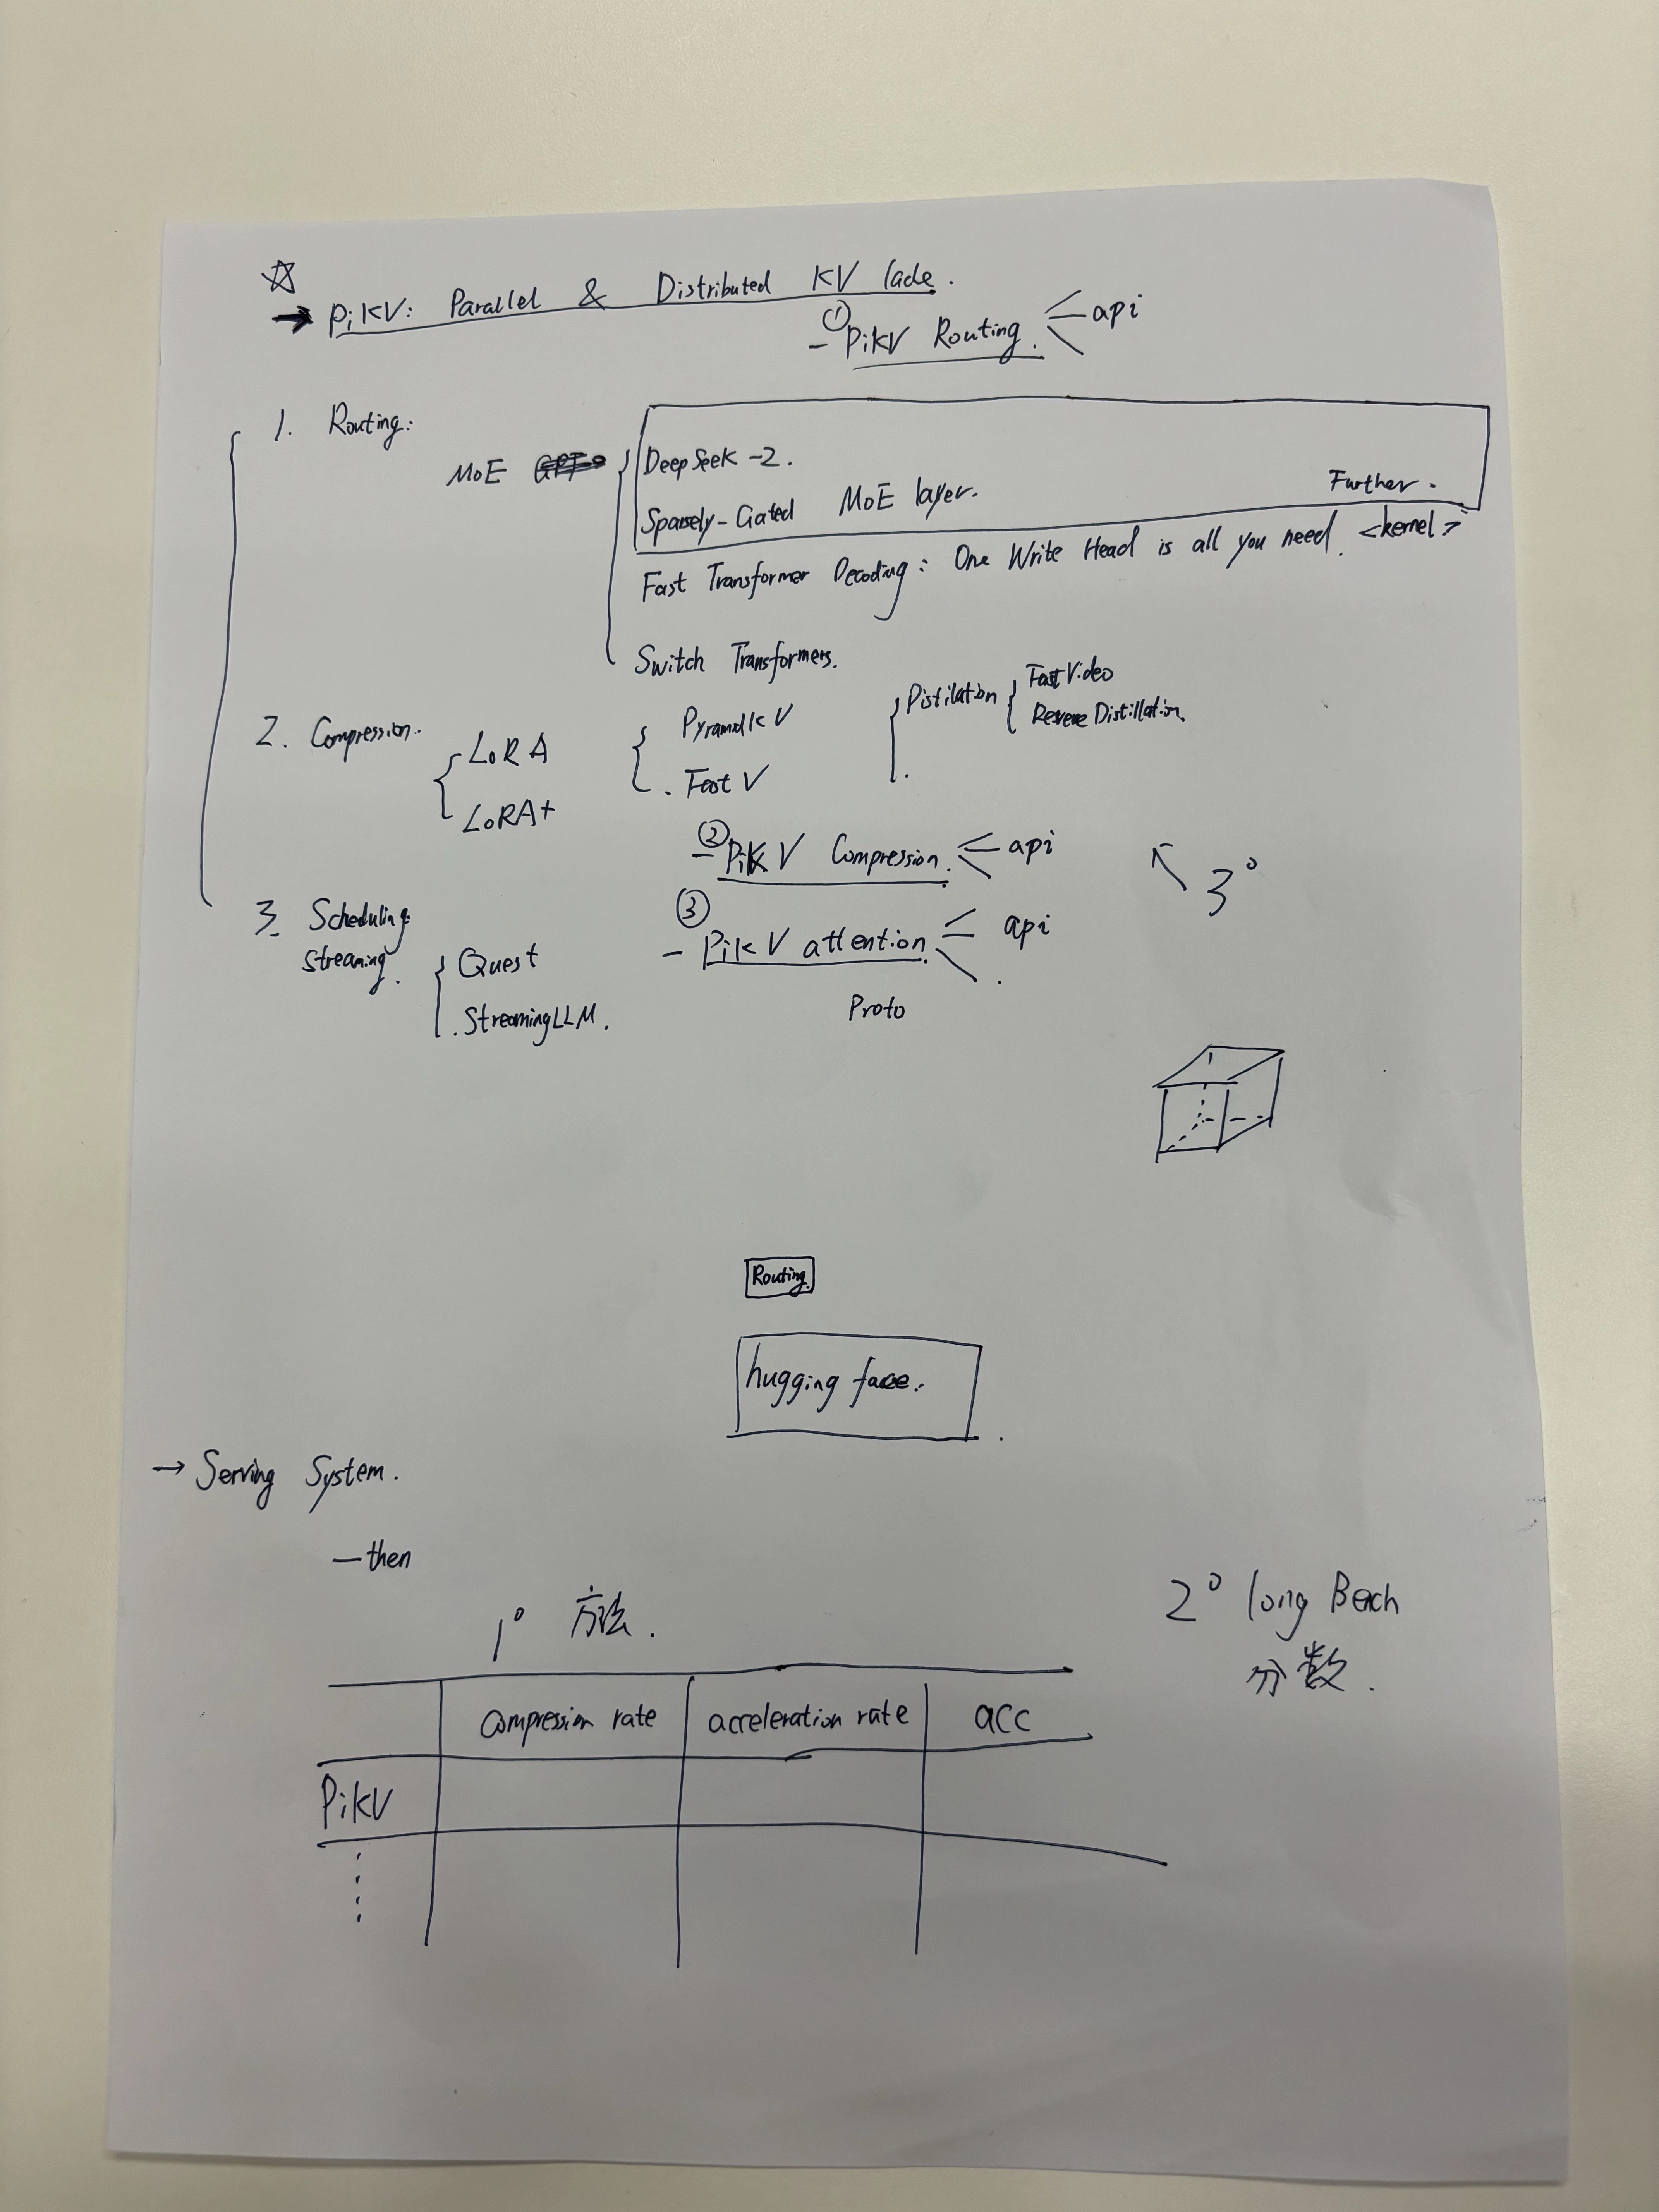 PiKV: Parallel & Distributed KV Cache.
① - PiKV Routing. api
1. Routing:
MoE
DeepSeek-2.
Sparsely-Gated MoE layer. Further.
Fast Transformer Decoding: One Write Head is all you need. <kernel>
Switch Transformers.
2. Compression.
LoRA
LoRA+
PyramidKV
FastV
Distilation
FastVideo
Revere Distillation.
② - PiKV Compression. api
3°
3. Scheduling
Streaming.
Quest
StreamingLLM.
③ - PiKV attention. api
Proto
Routing.
hugging face.
→ Serving System.
— then
1° 方法.
2° long Bench
分数.
compression rate
acceleration rate
acc
PiKV